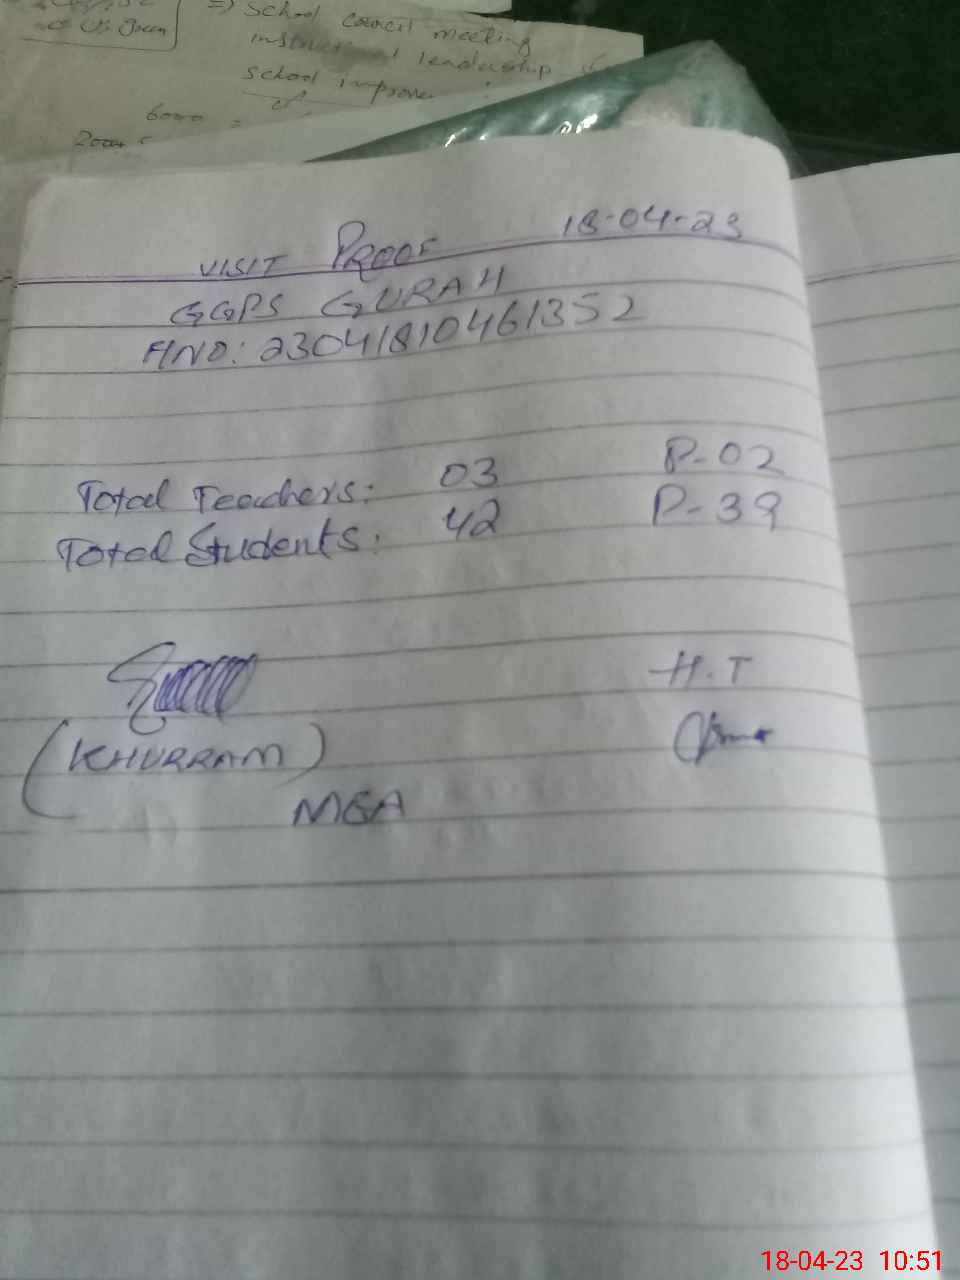 ⇒ School council meeting
instructional leadership
school improve
of
6000 =
VISIT PROOF 18-04-23
GGPS GURAH
AND: 23041810461352
Total Teachers: 03 P-02
Total Students: 42 P-39
H.T
(KHURRAM)
MEA
18-04-23 10:51